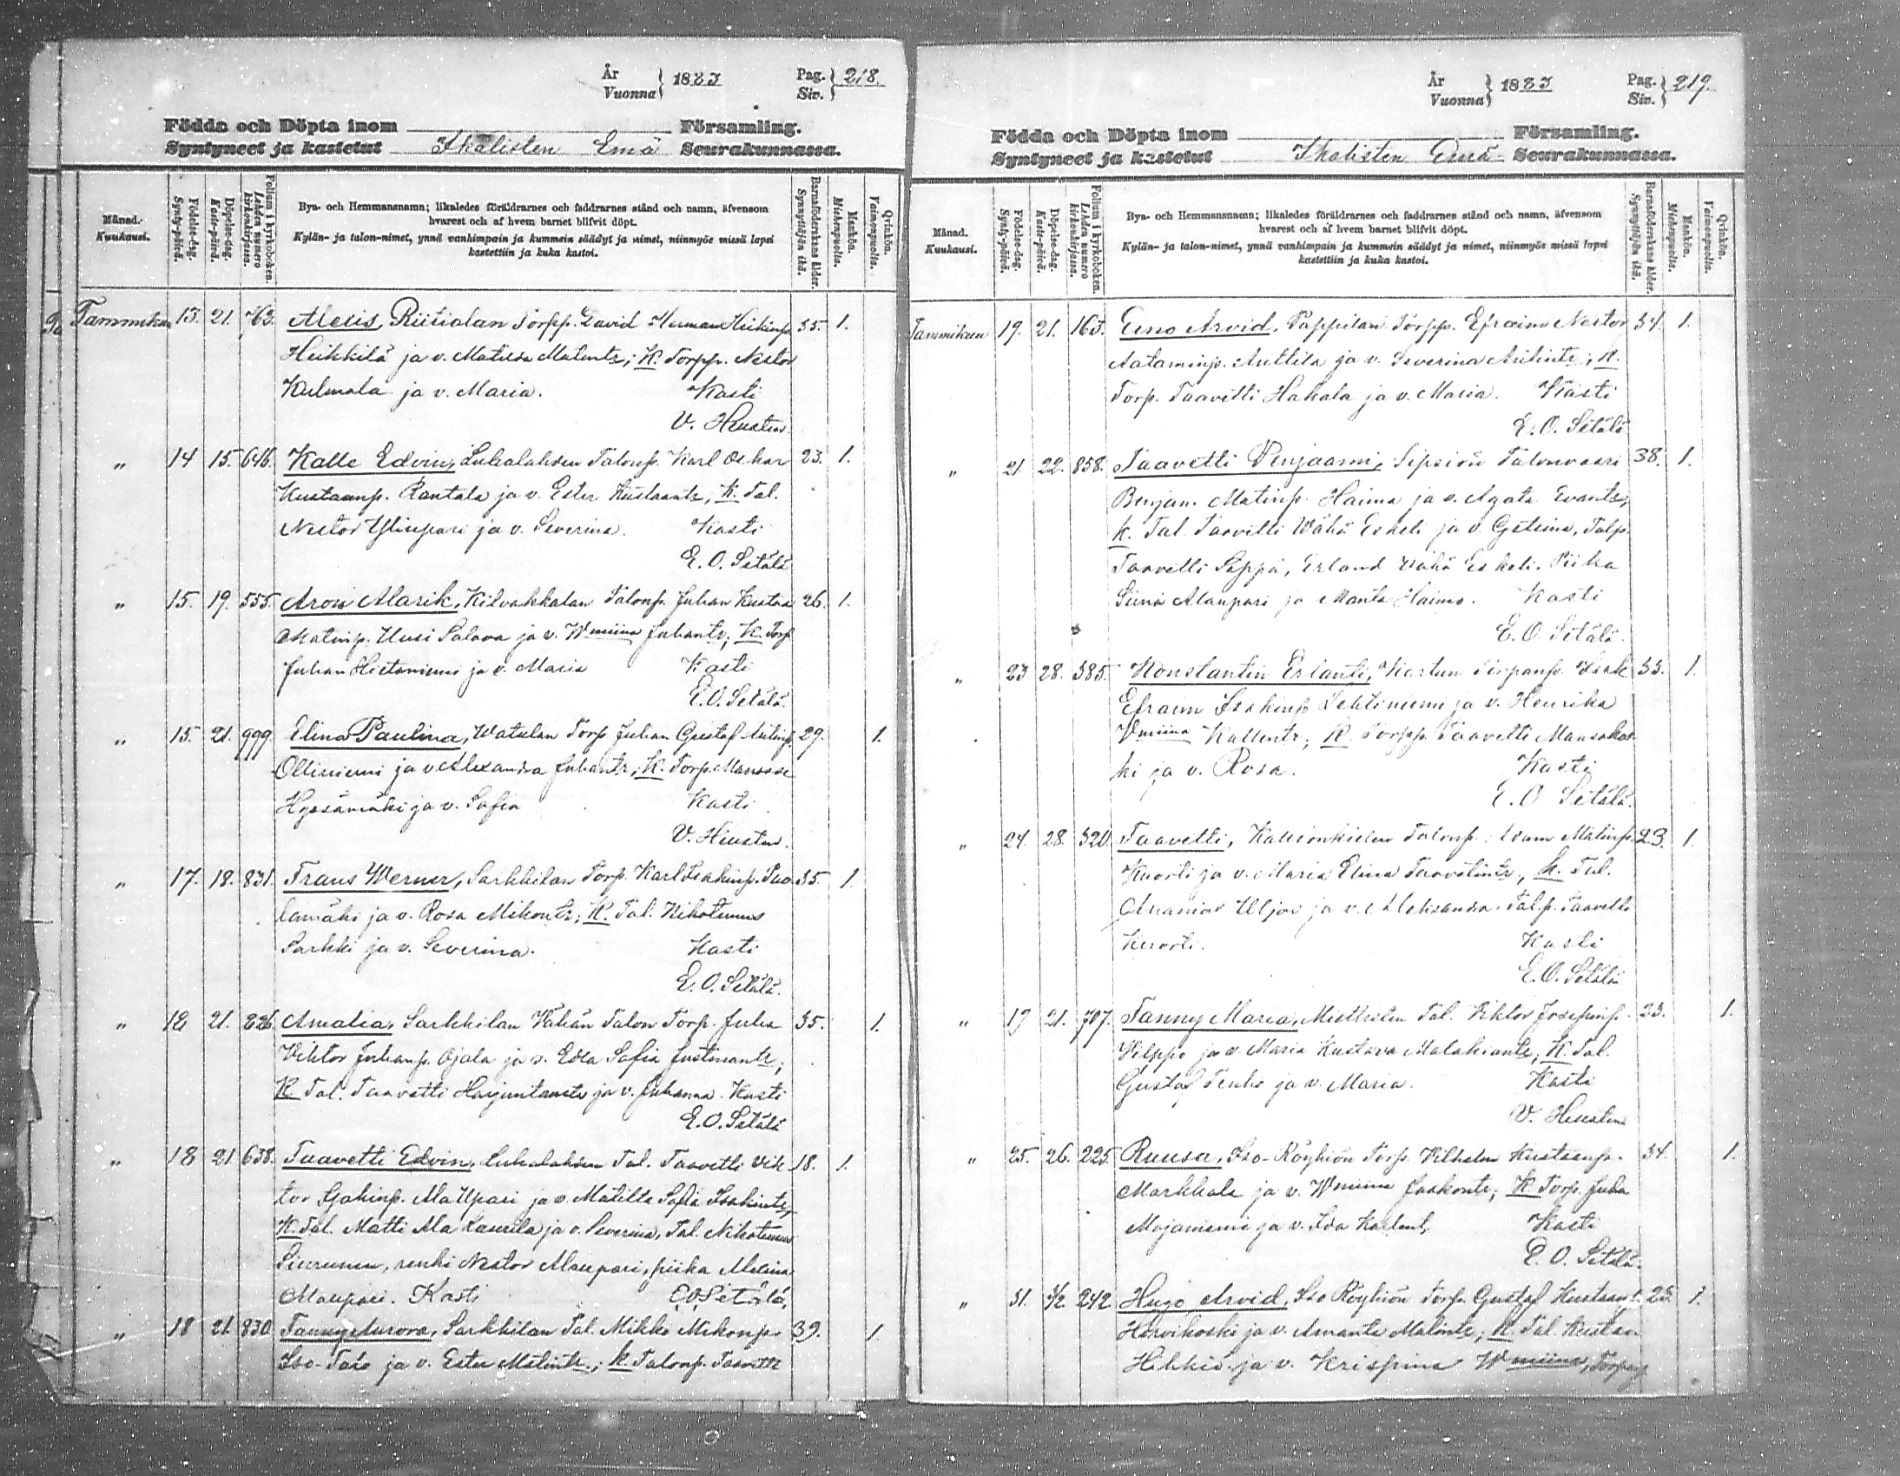 År
Vuonna } 1883
Pag.
Siv. } 218.
Födda och Döpta inom
Församling.
Syntyneet ja kastetut Ikalisten Emä Seurakunnassa.
Månad.
Kuukausi.
Födelse-dag.
Synty-päivä.
Döpelse-dag.
Kaste-päivä.
Folium i kyrkoboken.
Lehden numero kirkonkirjassa.
Bya- och Hemmansnamn; likaledes föräldrarnes och faddrarnes stånd och namn, äfvensom
hvarest och af hvem barnet blifvit döpt.
Kylän- ja talon-nimet, ynnä vanhimpain ja kummein säädyt ja nimet, niinmyös missä lapsi
kastettiin ja kuka kastoi.
Barnaföderskans ålder.
Synnyttäjän ikä.
Mankön.
Miehenpuolia.
Qvinkön.
Vaimonpuolia.
Tammikuu 13. 21. 763. Aleksis, Riitialan Torpp. David Herman Heikinp. 35. 1.
Heikkilä ja v. Matilda Matintr; K. Torpp. Nestor
Kulmala ja v. Maria. Kasti
V. Heusten.
" 14 15. 646. Kalle Edvin, Luhalahden Talonp. Karl Oskar 23. 1.
Kustaanp. Rantala ja v. Ester Kustaantr, K. Tal.
Nestor Yliupari ja v. Severina. Kasti
E. O. Setälä
" 15. 19. 555. Aron Alarik, Kilvakkalan Talonp. Juhan Kustaa 26. 1.
Matinp. Uusi Salava ja v. Wmiina Juhantr; K. Torp
Juhan Hietaniemi ja v. Maria Kasti
E. O. Setälä.
" 15. 21. 999. Elina Paulina, Watulan Torp Juhan Gustaf Antinp. 29. 1.
Olliniemi ja v. Alexandra Juhantr; K. Torp. Manasse
Hyssänmäki ja v. Sofia Kasti
V. Heusten.
" 17. 18. 831. Frans Werner, Sarkkilan Torp. Karl Isakinp. Tao- 35. 1.
lamäki ja v. Rosa Mikontr; K. Tal. Nikotemus
Sarkki ja v. Severina. Kasti
E. O. Setälä.
" 18 21. 826. Amalia, Sarkkilan Vähän Talon Torp. Juha 35. 1.
Viktor Juhanp. Ojala ja v. Edla Sofia Justinantr;
K. Tal. Taavetti Harjuntausta ja v. Juhanna. Kasti
E. O. Setälä
" 18 21 638. Taavetti Edvin, Luhalahden Tal. Taavetti Vik- 18. 1.
tor Isakinp. Ala Upari ja v. Matilta Sofia Isakintr,
K. Tal. Matti Ala Kaurila ja v. Severina, Tal. Nikotemus
Siurunen, renki Nestor Alaupari, piika Melina
Alaupari. Kasti E. O. Setälä.
" 18 21. 830. Fanny Aurora, Sarkkilan Tal. Mikko Mikonp. 39. 1.
Iso-Talo ja v. Ester Matintr.; K. Talonp. Taavetti
År
Vuonna } 1883
Pag.
Siv. } 219.
Födda och Döpta inom
Församling.
Syntyneet ja kastetut Ikalisten Emä- Seurakunnassa.
Månad.
Kuukausi.
Födelse-dag.
Synty-päivä.
Döpelse-dag.
Kaste-päivä.
Folium i kyrkoboken.
Lehden numero kirkonkirjassa.
Bya- och Hemmansnamn; likaledes föräldrarnes och faddrarnes stånd och namn, äfvensom
hvarest och af hvem barnet blifvit döpt.
Kylän- ja talon-nimet, ynnä vanhimpain ja kummein säädyt ja nimet, niinmyös missä lapsi
kastettiin ja kuka kastoi.
Barnaföderskans ålder.
Synnyttäjän ikä.
Mankön.
Miehenpuolia.
Qvinkön.
Vaimonpuolia.
Tammikuu 19. 21. 163. Eino Arvid, Pappilan Torpp. Efraim Nestor 34. 1.
Aataminp. Anttila ja v. Severina Antintr; K.
Torp. Taavetti Hakala ja v. Maria. Kasti
E. O. Setälä
" 21 22. 858. Taavetti Penjaami, Sipsiön Talonvaari 38. 1.
Benjam. Matinp. Haima ja v. Agata Evantr,
K. Tal. Taavetti Wähä Eskeli ja v. Gustava, Talp.
Taavetti Seppä, Erland Wähä Eskeli. Piika
Siina Alaupari ja Manta Haima. Kasti
E. O. Setälä.
" 23 28. 385. Konstantin Erlanti, Kartun Torpanp. Isak 33. 1.
Efraim Isakinp Lehtiniemi ja v. Henrika
Wmiina Kallentr; K. Torpp. Taavetti Mansakos-
ki ja v. Rosa. Kasti
E. O Setälä.
" 24 28. 520. Taavetti, Kallionkielen Talonp. Adam Matinp. 23. 1.
Kuorti ja v. Maria Elina Taavetintr, K. Tal.
Ananias Uljas ja v. Aleksandra. Talp. Taavetti
Kuorti. Kasti
E. O. Setälä
" 17 21. 707. Fanny Maria, Miettisten Tal. Viktor Josefinp. 23. 1.
Vilppo ja v. Maria Kustava Malakiantr, K. Tal.
Gustaf Tenho ja v. Maria. Kasti
V. Heusten
" 25. 26. 225. Ruusa, Iso-Röyhiön Torp. Vilhelm Kustaanp. 34. 1.
Markkala ja v. Wmiina Jaakontr; K. Torp. Juha
Majaniemi ja v. Ida Kaslent, Kasti
E. O. Setälä.
" 31. 3/2. 242 Hugo Arvid, Iso Röyhiön Torp. Gustaf Kustaanp. 25. 1.
Harvikoski ja v. Amanta Matintr; K. Tal. Kustaa
Heikkiä ja v. Krispina Wmiina, Torpanp